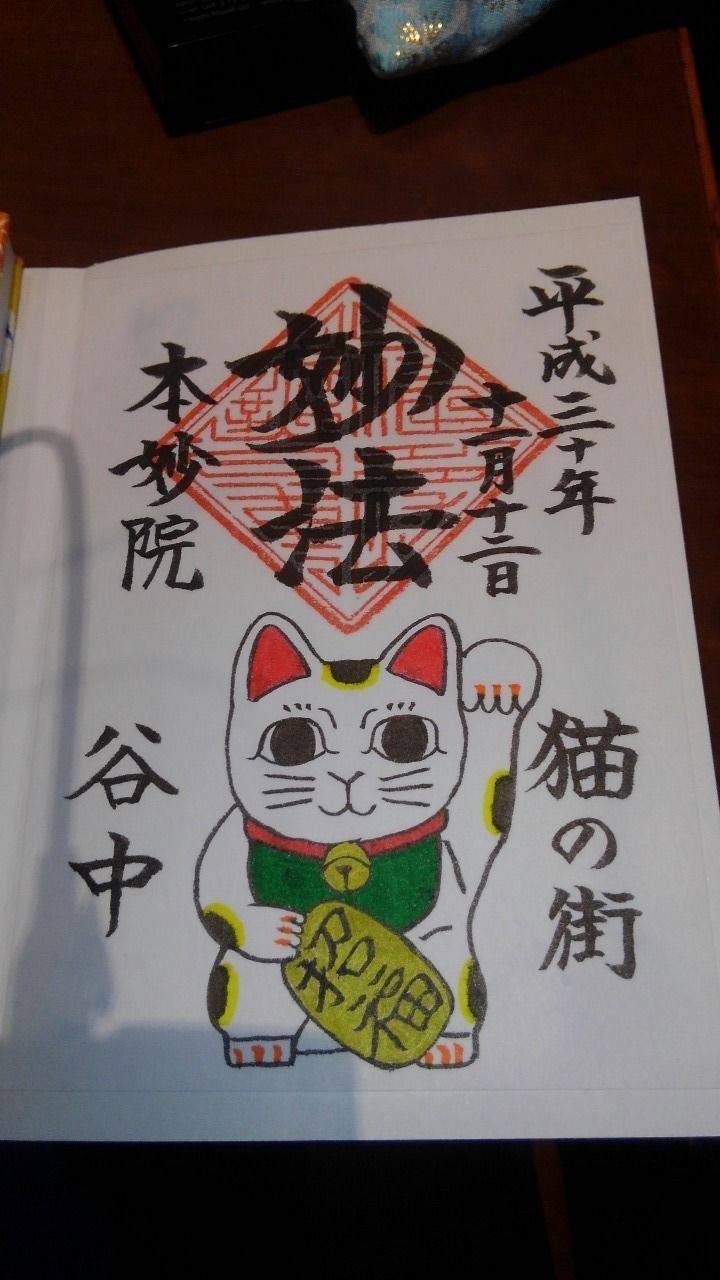 平成三十年
十一月十二日
妙法
本妙院
猫の街
招福
谷中